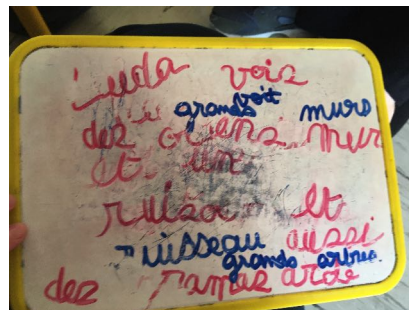 Luda vois
voit
grands murs
des grens mur
et un
ruiso et
ruisseau aussi
grands arbres.
des ramas arbe